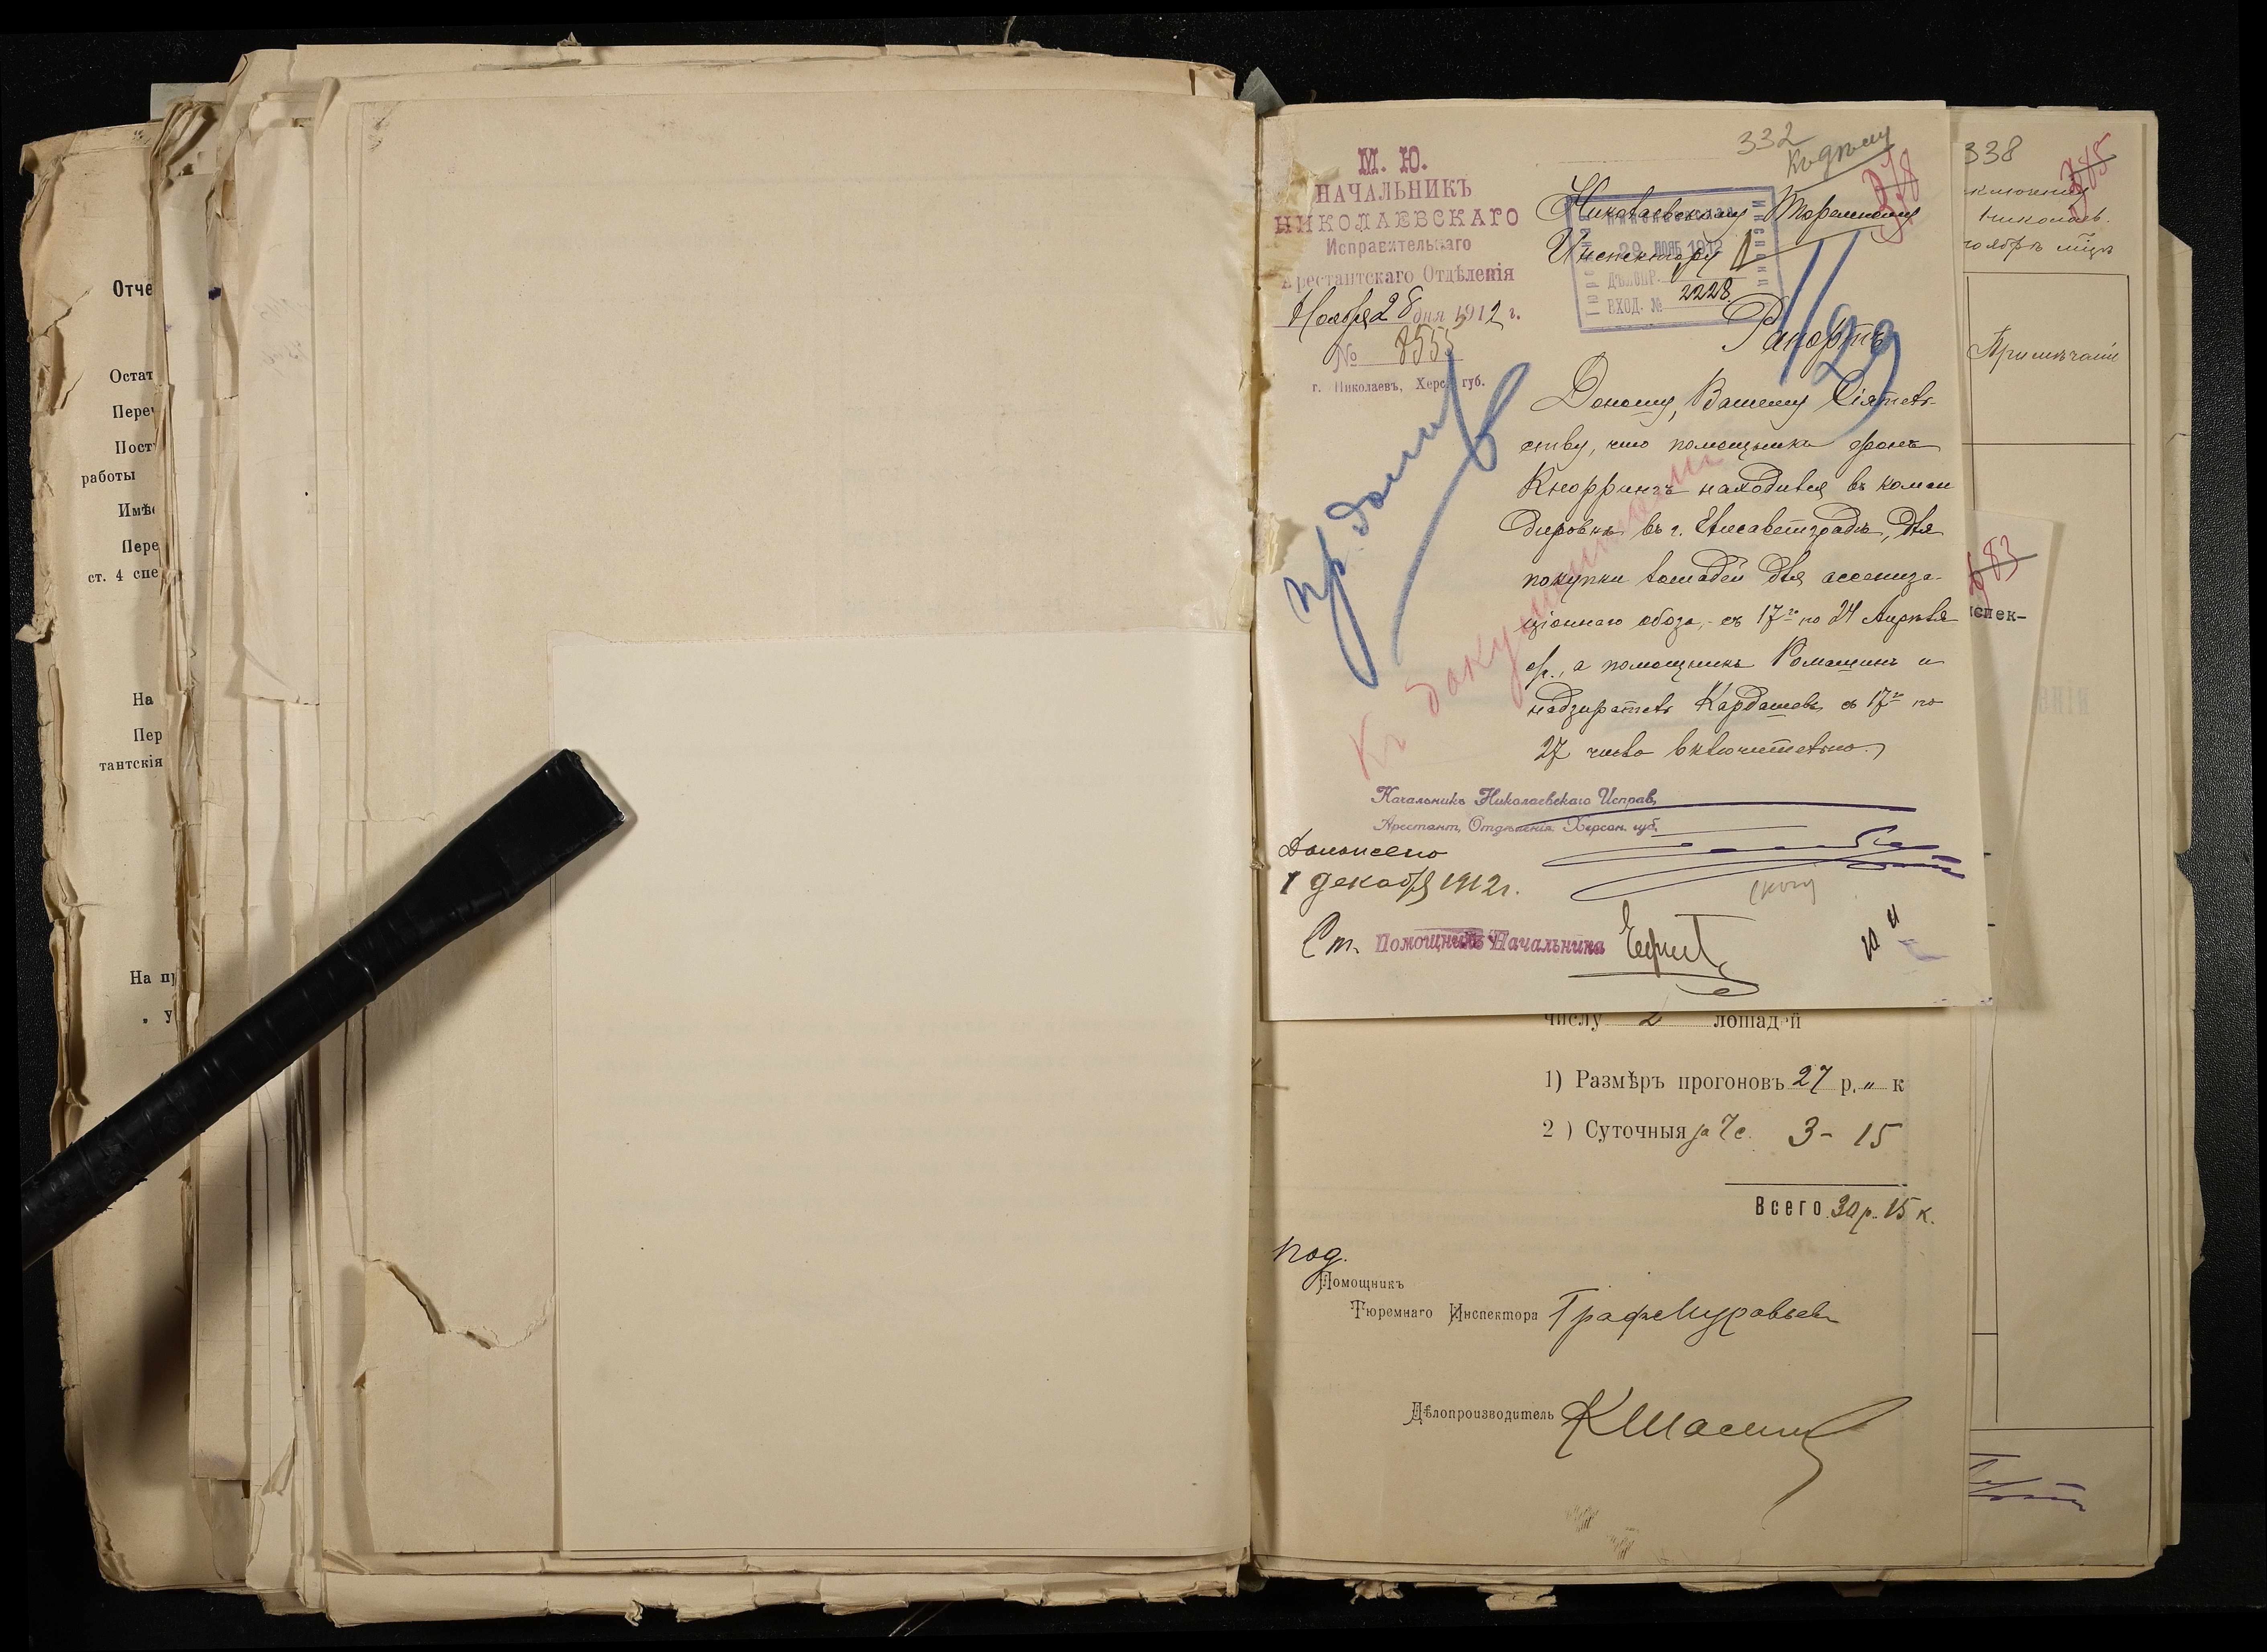 Отче
Остат
Переч
Пост
работы
Имѣ
Пере
ст. 4 спе
На
Пер
тантскія
На п
„ у
332
Къ дѣлу
378
М. Ю.
НАЧАЛЬНИКЪ
НИКОЛАЕВСКАГО
Исправительнаго
Арестантскаго Отдѣленія
Ноября 28 дня 1912 г.
№ 8555
г. Николаевъ, Херс. губ.
Николаевскому Тюремному
Инспектору
29 НОЯБ 1912
ДѢЛОПР.
ВХОД. № 2228
Рапортъ
11/29
Доношу, Вашему Сіятель-
ству, что помощникъ фонъ
Кноррингъ находился въ коман
дировкѣ въ г. Елисаветградѣ, для
покупки лошадей для ассениза-
ціоннаго обоза, - съ 17го по 24 Апрѣля
с/г., а помощникъ Ромашинъ и
надзиратель Кардашевъ съ 17го по
27 число включительно.
Къ
Начальникъ Николаевскаго Исправ.
Арестант. Отдѣленія Херсон. губ.
Доложено
1 декабря 1912 г.
Ст. Помощникъ Начальника
числу 2 лошадей
1) Размѣръ прогоновъ 27 р. „ к
2) Суточныя за 7 с. 3 - 15
Всего 30 р. 15 к.
под.
Помощникъ
Тюремнаго Инспектора Графъ Муравьевъ
Дѣлопроизводитель
338
385
ключенія
Николаев.
ноябрь мѣц
Примѣчаніе
683
испек-